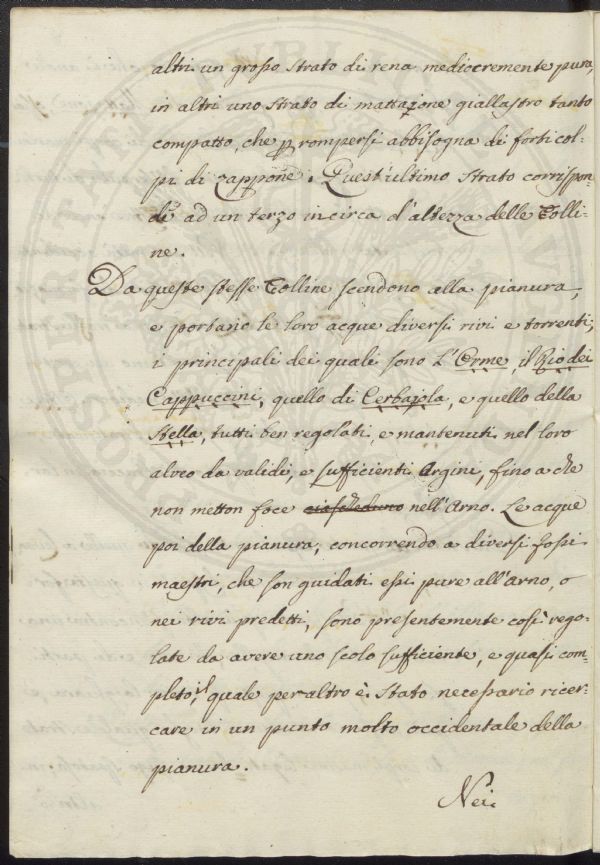 altri un grosso strato di rena mediocremente pura,
in altri uno strato di mattajone giallastro tanto
compatto, che p rompersi abbisogna di forti col-
pi di zappone. Quest'ultimo strato corrispon-
de ad un terzo in circa d'altezza delle Colli-
ne.
Da queste stesse Colline scendono alla pianura,
e portano le loro acque diversi rivi e torrenti,
i principali dei quali sono l'Orme, il Rio dei
Cappuccini, quello di Cerbajola, e quello della
Stella, tutti ben regolati, e mantenuti nel loro
alveo da validi, e sufficienti Argini, fino a che
non metton foce ciascheduno nell'Arno. Le acque
poi della pianura, concorrendo a diversi fossi
maestri, che son guidati essi pure all'Arno, o
nei rivi predetti, sono presentemente così rego-
late da avere uno scolo sufficiente, e quasi com-
pleto, il quale per altro è stato necessario ricer-
care in un punto molto occidentale della
pianura.
Nei